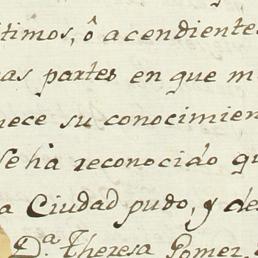 timos, ô acendientes
as partes en que m
nece su conocimien
Se ha reconocido qu
a Ciudad pudo, y de
D.ª Theresa Pomer